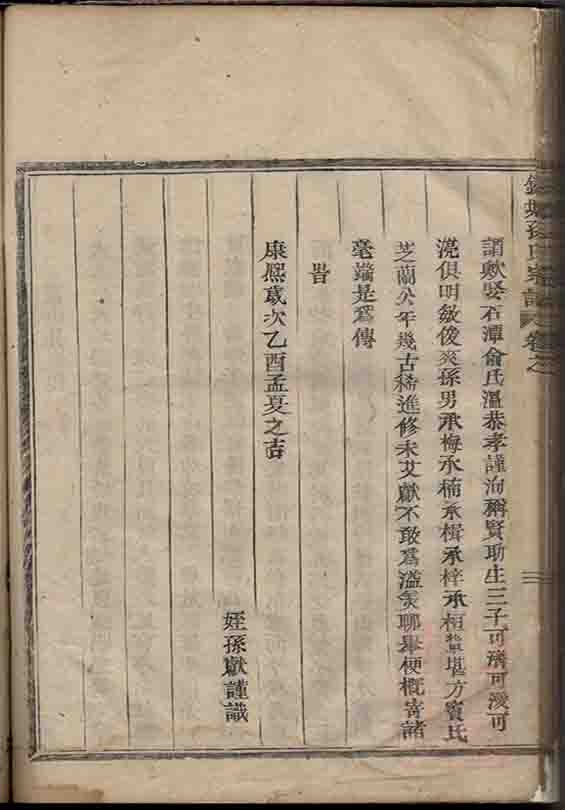 孫氏宗譜 卷之
謂歟娶石潭俞氏溫恭孝謹洵稱賢助生三子可濟可浚可
堯俱明敏俊爽孫男承梅承楠承楫承梓承栢皆堪方竇氏
芝蘭公年幾古稀進修未艾獻不敢爲溢美聊舉梗概寄諸
毫端是爲傳
旹
康熙歲次乙酉孟夏之吉
姪孫獻謹識